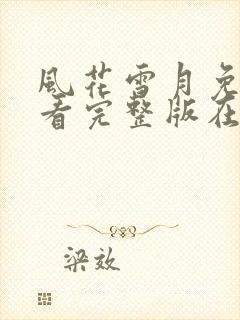 風花雪月免
看完整版在
梁效